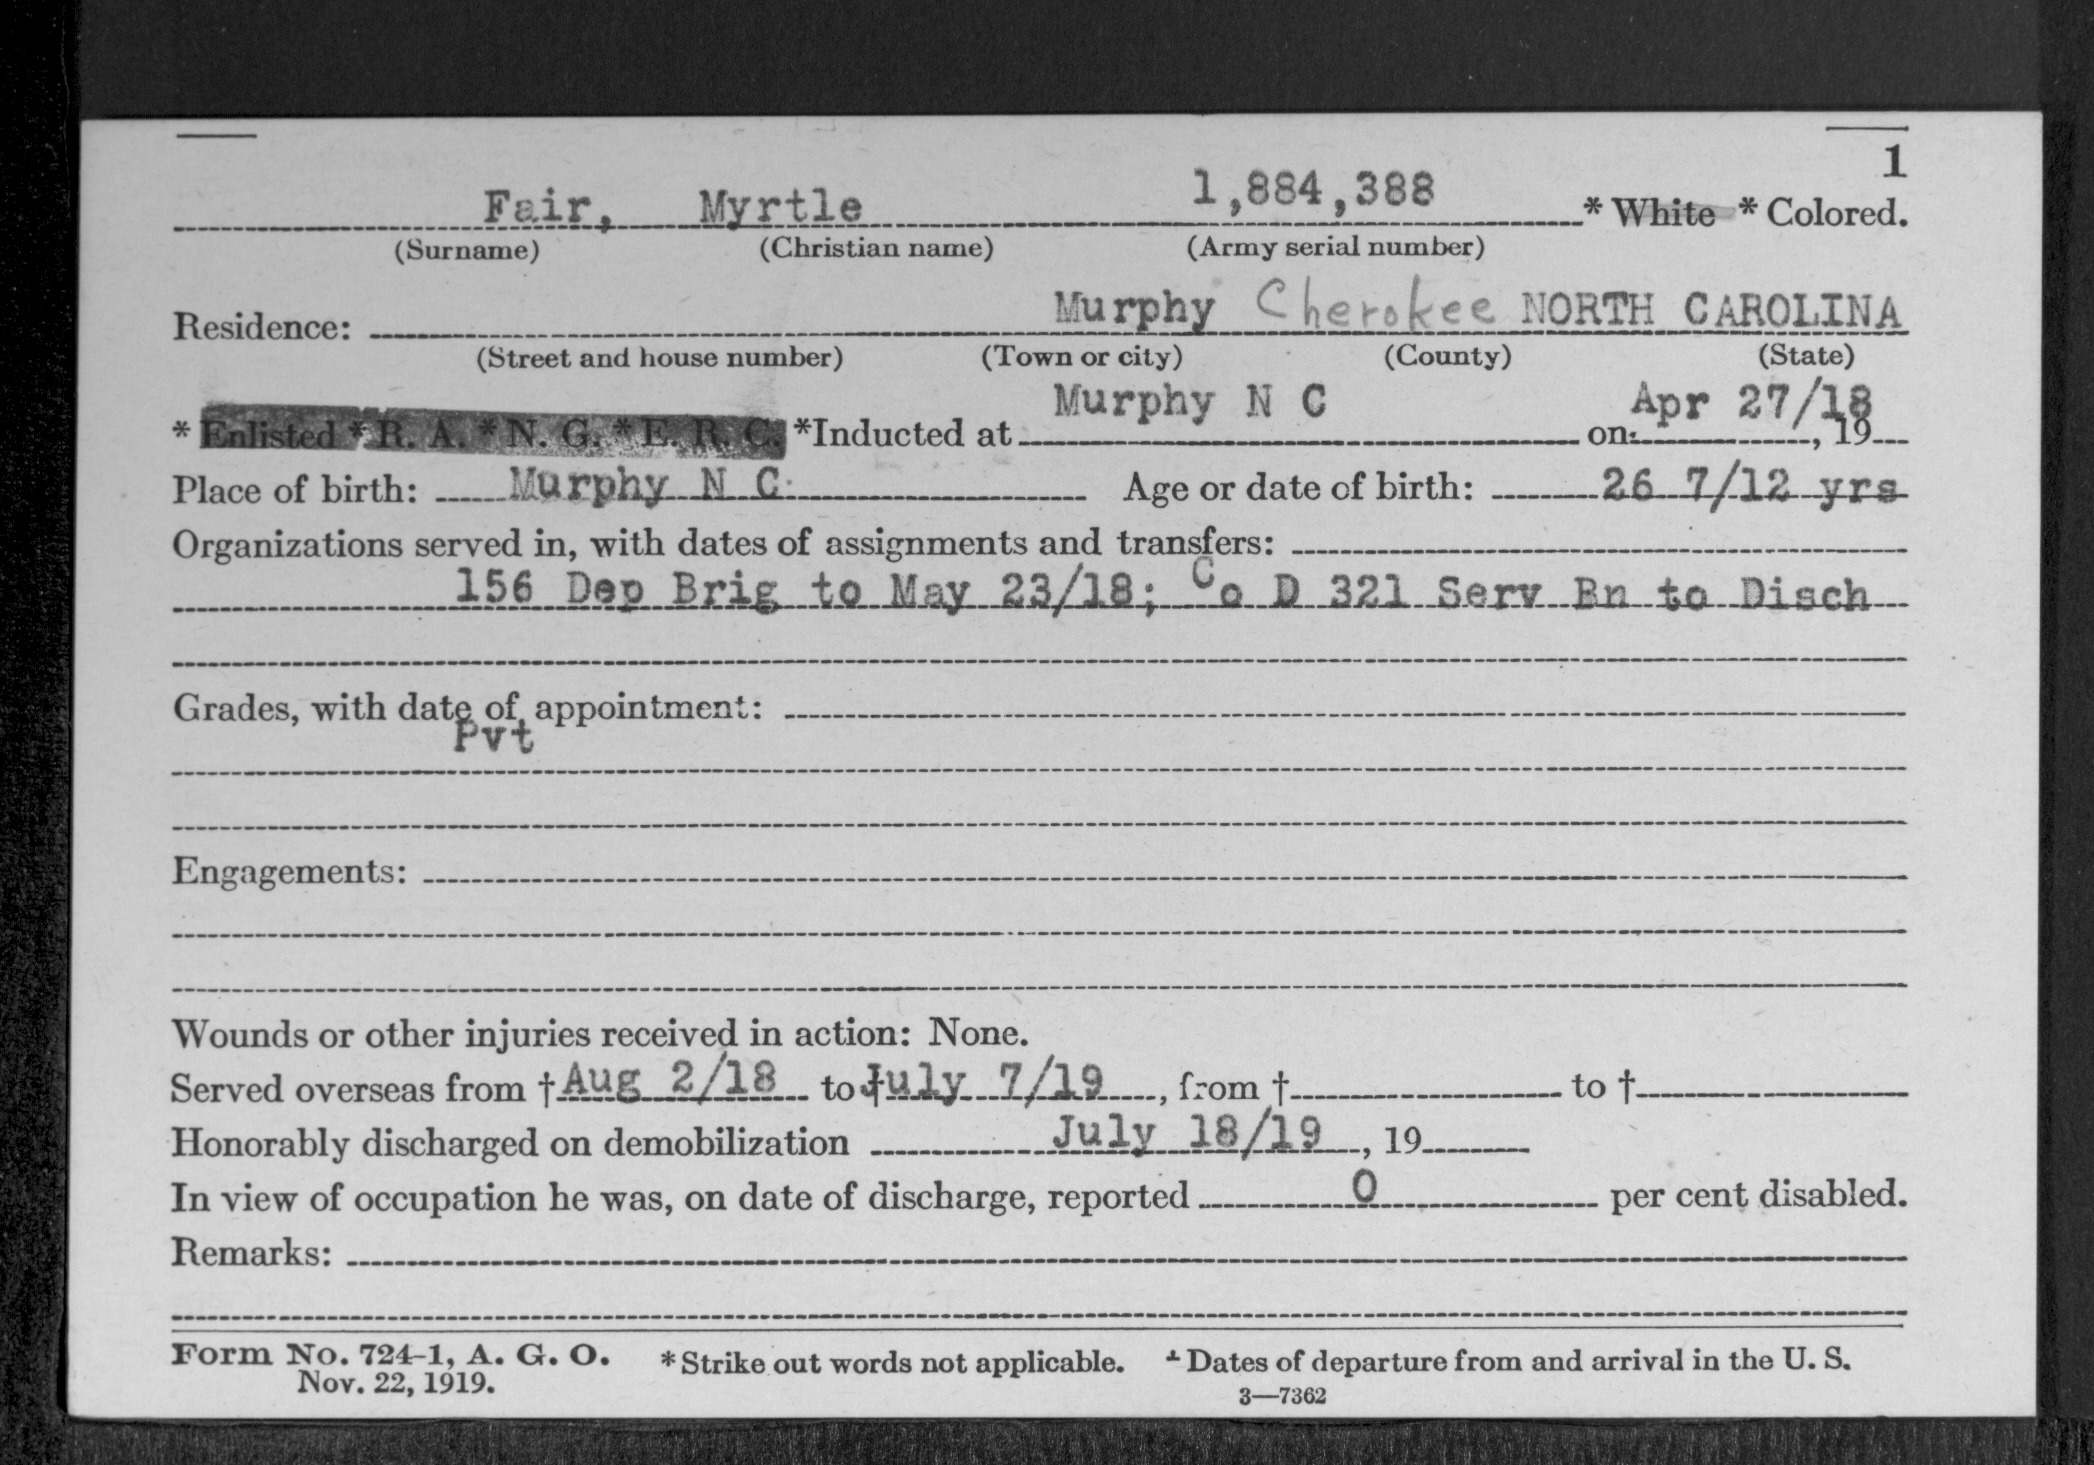 1
Fair, Myrtle 1,884,388 * White * Colored.
(Surname) (Christian name) (Army serial number)
Residence: Murphy Cherokee NORTH CAROLINA
(Street and house number) (Town or city) (County) (State)
Murphy N C Apr 27/18
* Enlisted * R. A. * N. G. * E. R. C. *Inducted at on , 19
Place of birth: Murphy N C Age or date of birth: 26 7/12 yrs
Organizations served in, with dates of assignments and transfers:
156 Dep Brig to May 23/18; Co D 321 Serv Bn to Disch
Grades, with date of appointment:
Pvt
Engagements:
Wounds or other injuries received in action: None.
Served overseas from † Aug 2/18 to † July 7/19, from † to †
Honorably discharged on demobilization July 18/19, 19
In view of occupation he was, on date of discharge, reported 0 per cent disabled.
Remarks:
Form No. 724-1, A. G. O. * Strike out words not applicable. † Dates of departure from and arrival in the U. S.
Nov. 22, 1919. 3—7362